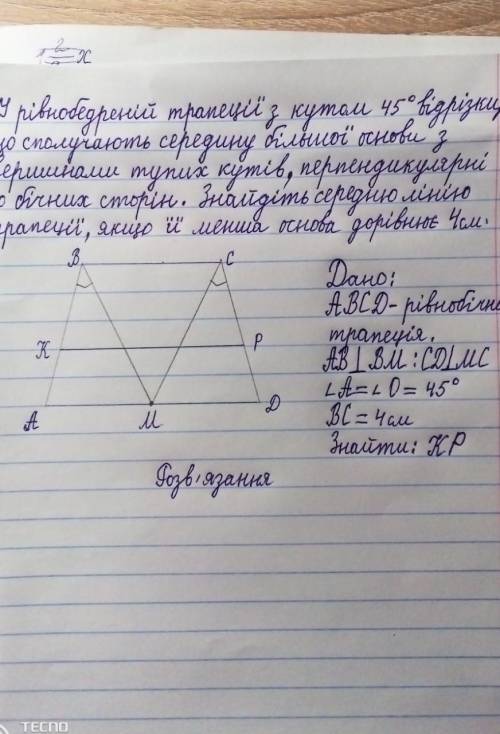 2/2 x
У рівнобедреній трапеції з кутом 45° відрізки,
що сполучають середину більшої основи з
вершинами тупих кутів, перпендикулярні
до бічних сторін. Знайдіть середню лінію
трапеції, якщо її менша основа дорівнює 4см.
B C
K P
A M D
Дано:
ABCD - рівнобічна
трапеція.
AB⊥BM: CD⊥MC
∠A=∠D=45°
BC=4см
Знайти: KP
Розв'язання
TECNO